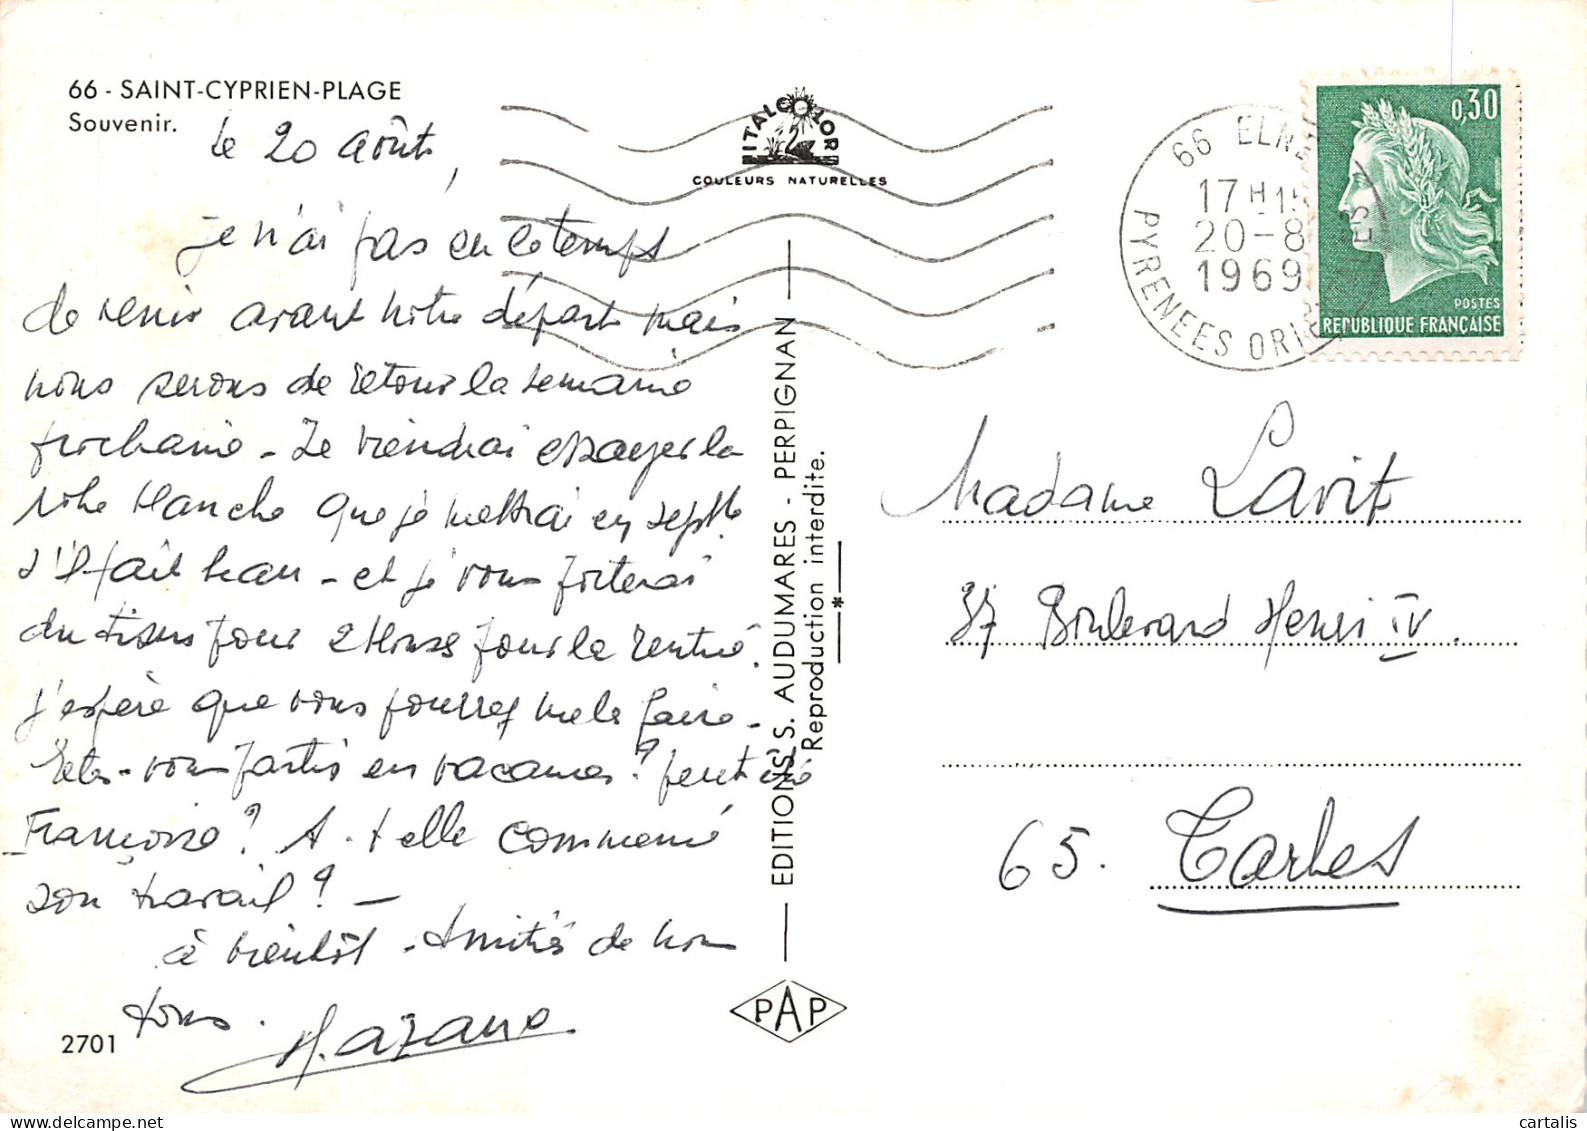 66 - SAINT-CYPRIEN-PLAGE
Souvenir.
le 20 août,
je n'ai pas eu le temps
de venir avant notre départ mais
nous serons de retour la semaine
prochaine - Je viendrai essayer la
robe blanche que je mettrai en septbre
s'il fait beau - et je vous porterai
du tissu pour 2 blouses pour la rentrée.
j'espère que vous pourrez me le faire -
Etes-vous partis en vacances ? peut être
Françoise ? A-t-elle commencé
son travail ? -
à bientôt - Amitiés de nous
tous.
2701
ITALCOLOR
COULEURS NATURELLES
EDITIONS S. AUDUMARES - PERPIGNAN
Reproduction interdite.
PAP
66 ELNE
17H15
20-8
1969
PYRENEES ORIENTALES
0,30
POSTES
REPUBLIQUE FRANÇAISE
Madame Lavit
37 Boulevard Henri IV.
65. Tarbes
cartalis